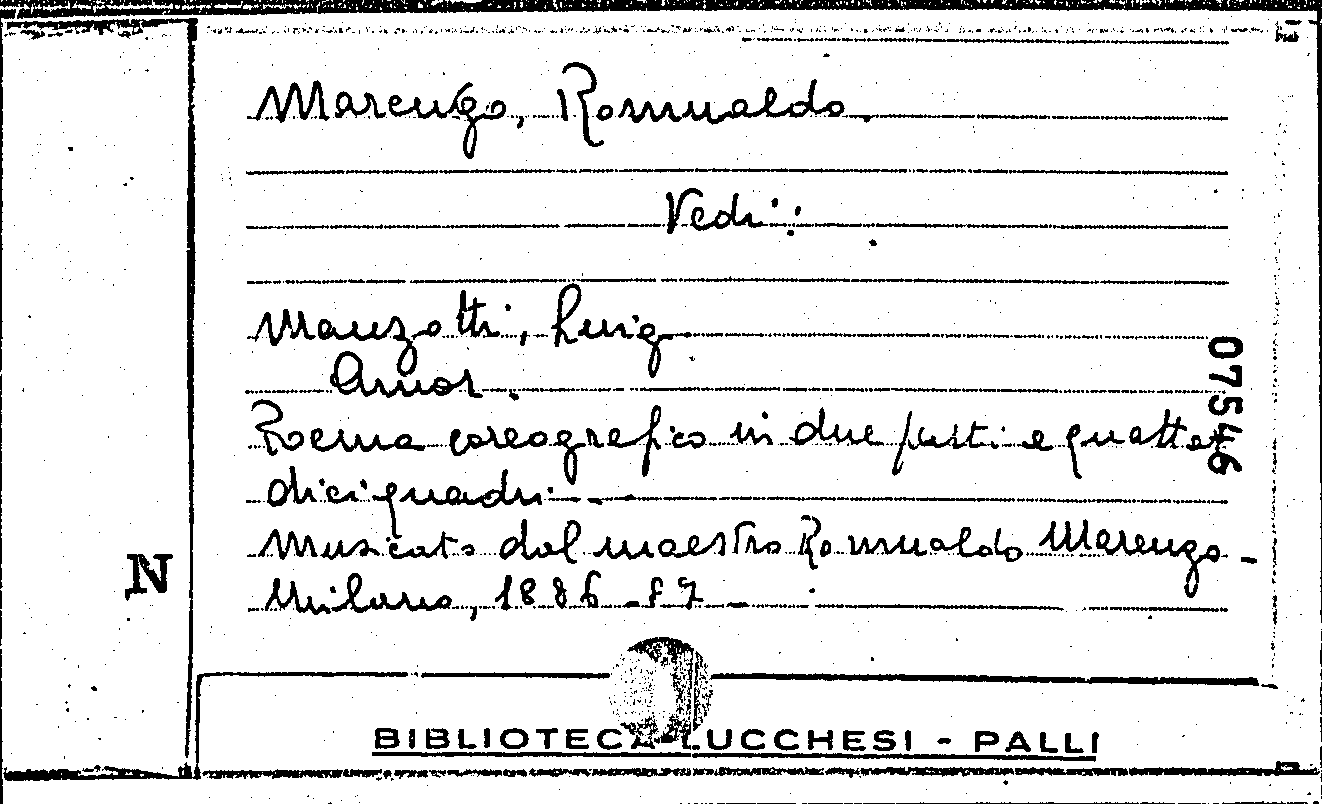 Marengo, Romualdo.
Vedi:
Manzotti, Luigi
Amor.
Poema coreografico in due parti e quattor
dici quadri. -
Musicato dal maestro Romualdo Marengo -
Milano, 1886-87 -
075446
N
BIBLIOTECA LUCCHESI - PALLI